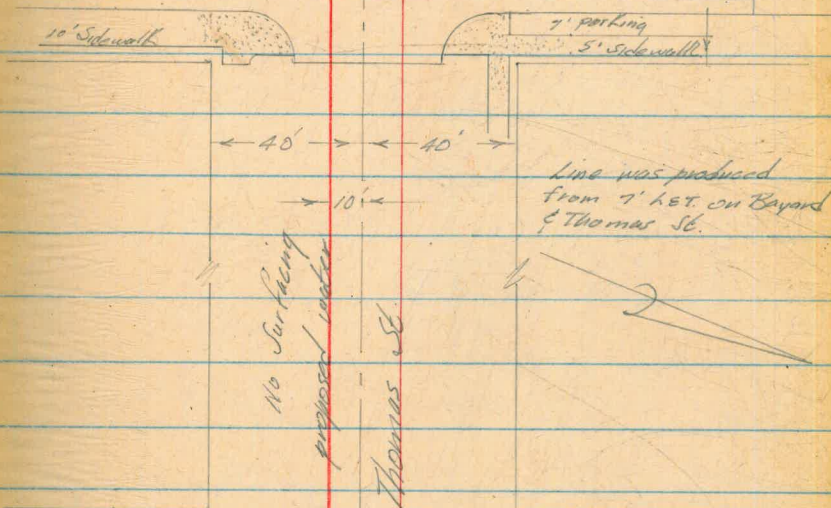 10' Sidewalk
7' parking
5' sidewalk
40'
40'
10'
Line was produced
from 7' L&T. on Bayard
& Thomas St.
No Surfacing
proposed water
Thomas St